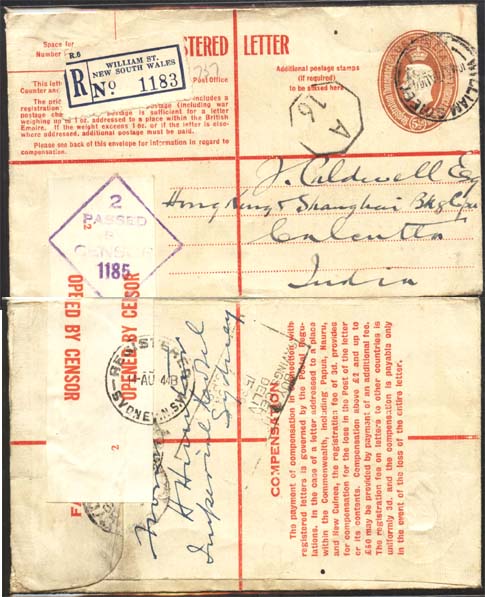 REGISTERED LETTER
R.6
Space for
Number
WILLIAM ST.
NEW SOUTH WALES
R No 1183
737
Additional postage stamps
(if required)
to be affixed here
This lett
Post Office
Counter an
The pri
includes a
registration
postage (including war
charge) postage is sufficient for a letter
weighing up to 1 oz. addressed to a place within the British
Empire. If the weight exceeds 1 oz. or if the letter is else-
where addressed, additional postage must be paid.
Please see back of this envelope for information in regard to
compensation.
A
16
J. Caldwell Esq
Hong Kong & Shanghai Bkg Cpn
Calcutta
India
2
PASSED
BY
CENSOR
1185
2
OPENED BY CENSOR
OPENED BY CENSOR
2
REGISTERED
AU 43
SYDNEY N.S.W
From
Imperial Hotel
Sydney
COMPENSATION
The payment of compensation in connection with
registered letters is governed by the Postal Regu-
lations. In the case of a letter addressed to a place
within the Commonwealth, including Papua, Nauru,
and New Guinea, the registration fee of 3d. provides
for compensation for the loss in the Post of the letter
or its contents. Compensation above £2 and up to
£50 may be provided by payment of an additional fee.
The registration fee on letters to other countries is
uniformly 3d. and the compensation is payable only
in the event of the loss of the entire letter.